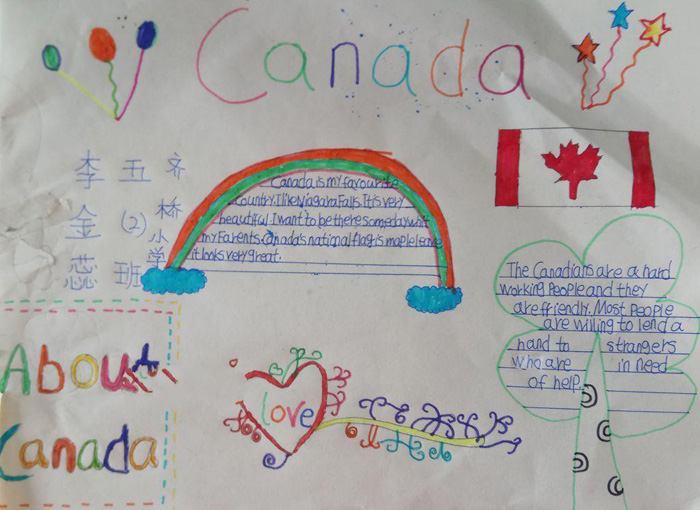 Canada
齐桥小学
五(2)班
李金蕊
Canada is my favourite
country. I like Niagara Falls. It is very
beautiful. I want to be there someday with
my Parents. Canada's national flag is maple leave
it looks very great.
The Canadians are a hard
working People and they
are friendly. Most People
are willing to lend a
hand to strangers
who are in need
of help.
About
Canada
love